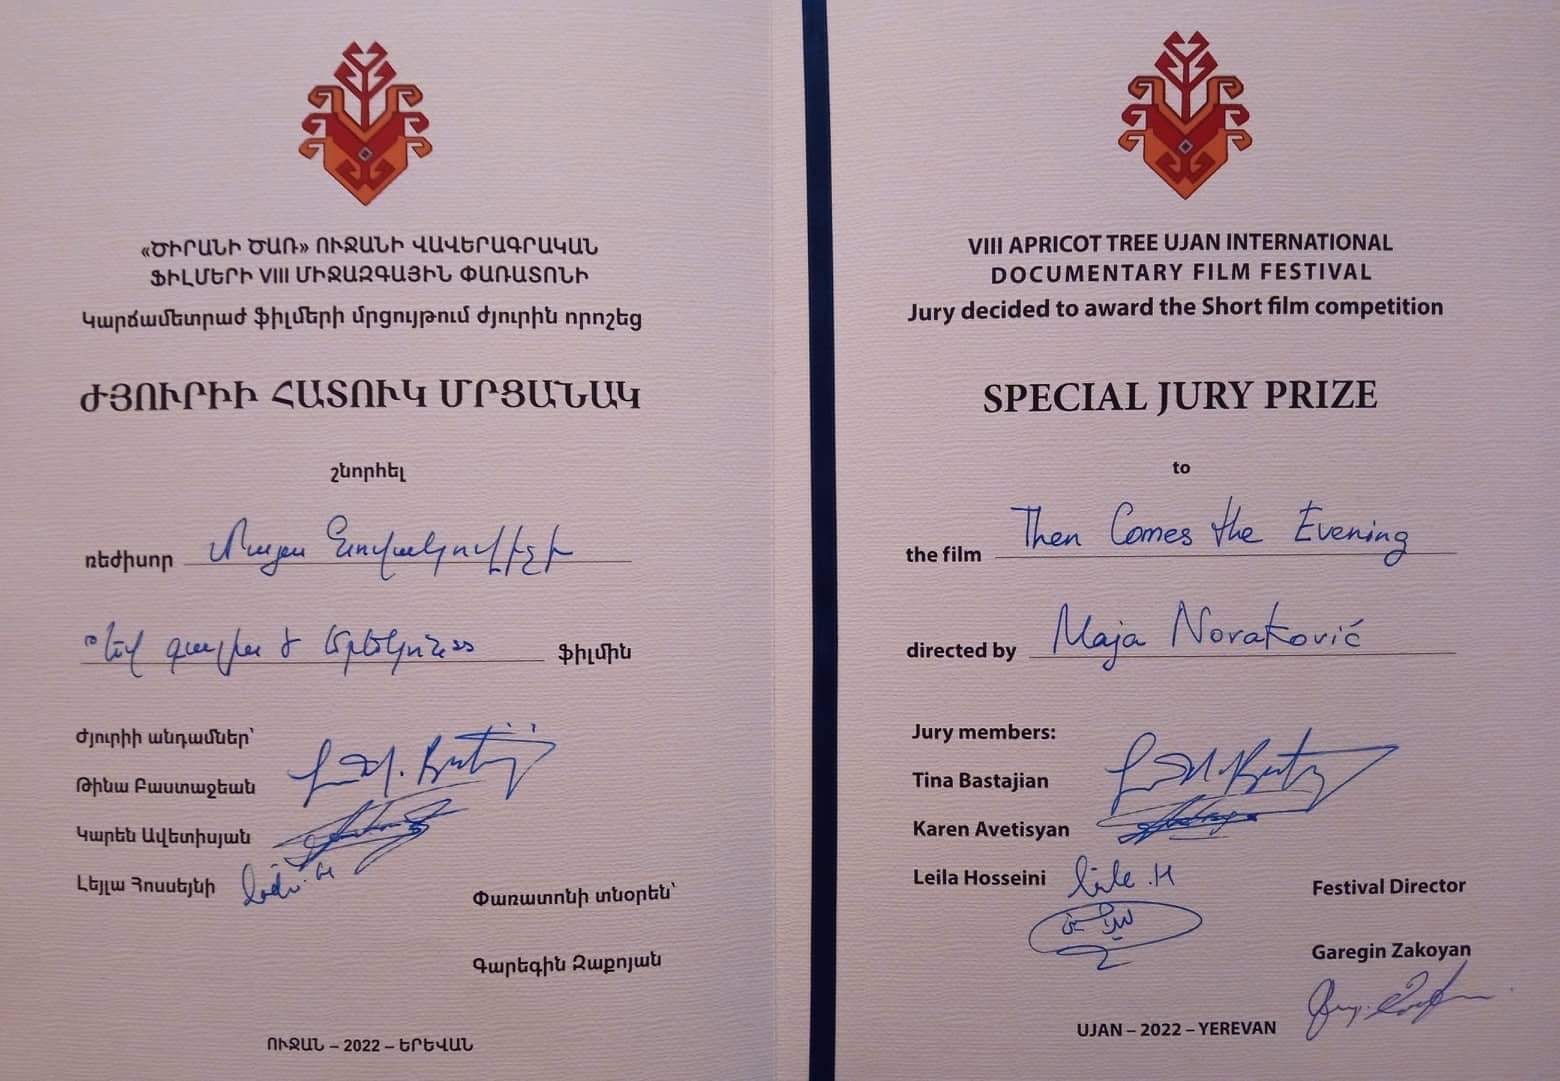 «ԾԻՐԱՆԻ ԾԱՌ» ՈՒՋԱՆԻ ՎԱՎԵՐԱԳՐԱԿԱՆ
ՖԻԼՄԵՐԻ VIII ՄԻՋԱԶԳԱՅԻՆ ՓԱՌԱՏՈՆԻ
Կարճամետրաժ ֆիլմերի մրցույթում ժյուրին որոշեց
ԺՅՈՒՐԻԻ ՀԱՏՈՒԿ ՄՐՑԱՆԱԿ
շնորհել
ռեժիսոր Մայա Նովակովիչի
Թեվ գալիս է երեկոն ֆիլմին
Ժյուրիի անդամներ՝
Թինա Բաստաջեան
Կարեն Ավետիսյան
Լեյլա Հոսսեյնի
Փառատոնի տնօրեն՝
Գարեգին Զաքոյան
ՈՒՋԱՆ – 2022 – ԵՐԵՎԱՆ
VIII APRICOT TREE UJAN INTERNATIONAL
DOCUMENTARY FILM FESTIVAL
Jury decided to award the Short film competition
SPECIAL JURY PRIZE
to
the film Then Comes the Evening
directed by Maja Novaković
Jury members:
Tina Bastajian
Karen Avetisyan
Leila Hosseini
Festival Director
Garegin Zakoyan
UJAN – 2022 – YEREVAN